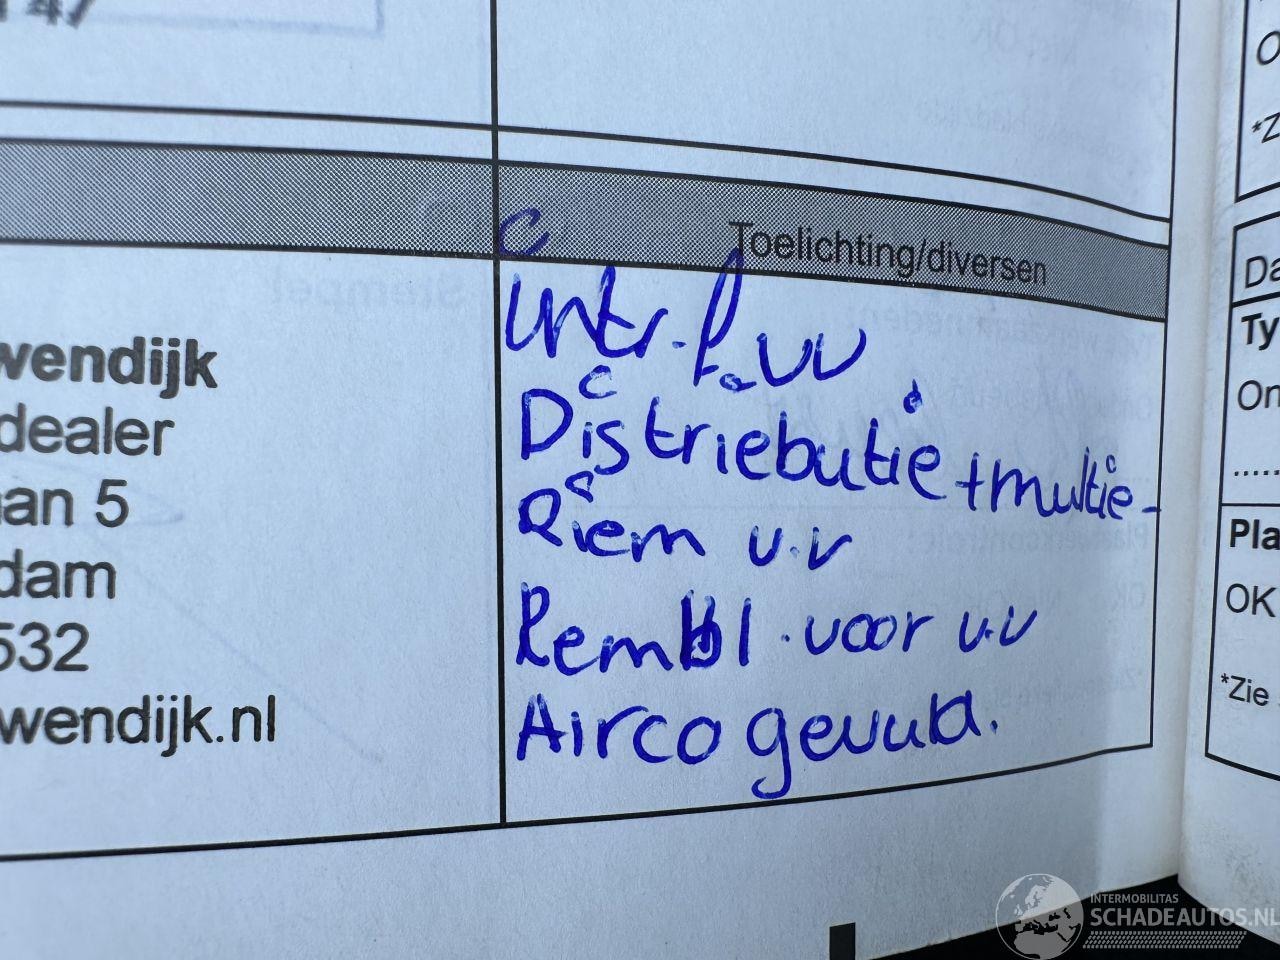 147
Toelichting/diversen
Intr.f. vv
Distriebutie + multie-
Riem v.v
Rembl. voor v.v
Airco gevuld.
wendijk
dealer
aan 5
dam
532
wendijk.nl
Da
Ty
On
.....
Pla
OK
*Zie
INTERMOBILITAS
SCHADEAUTOS.NL